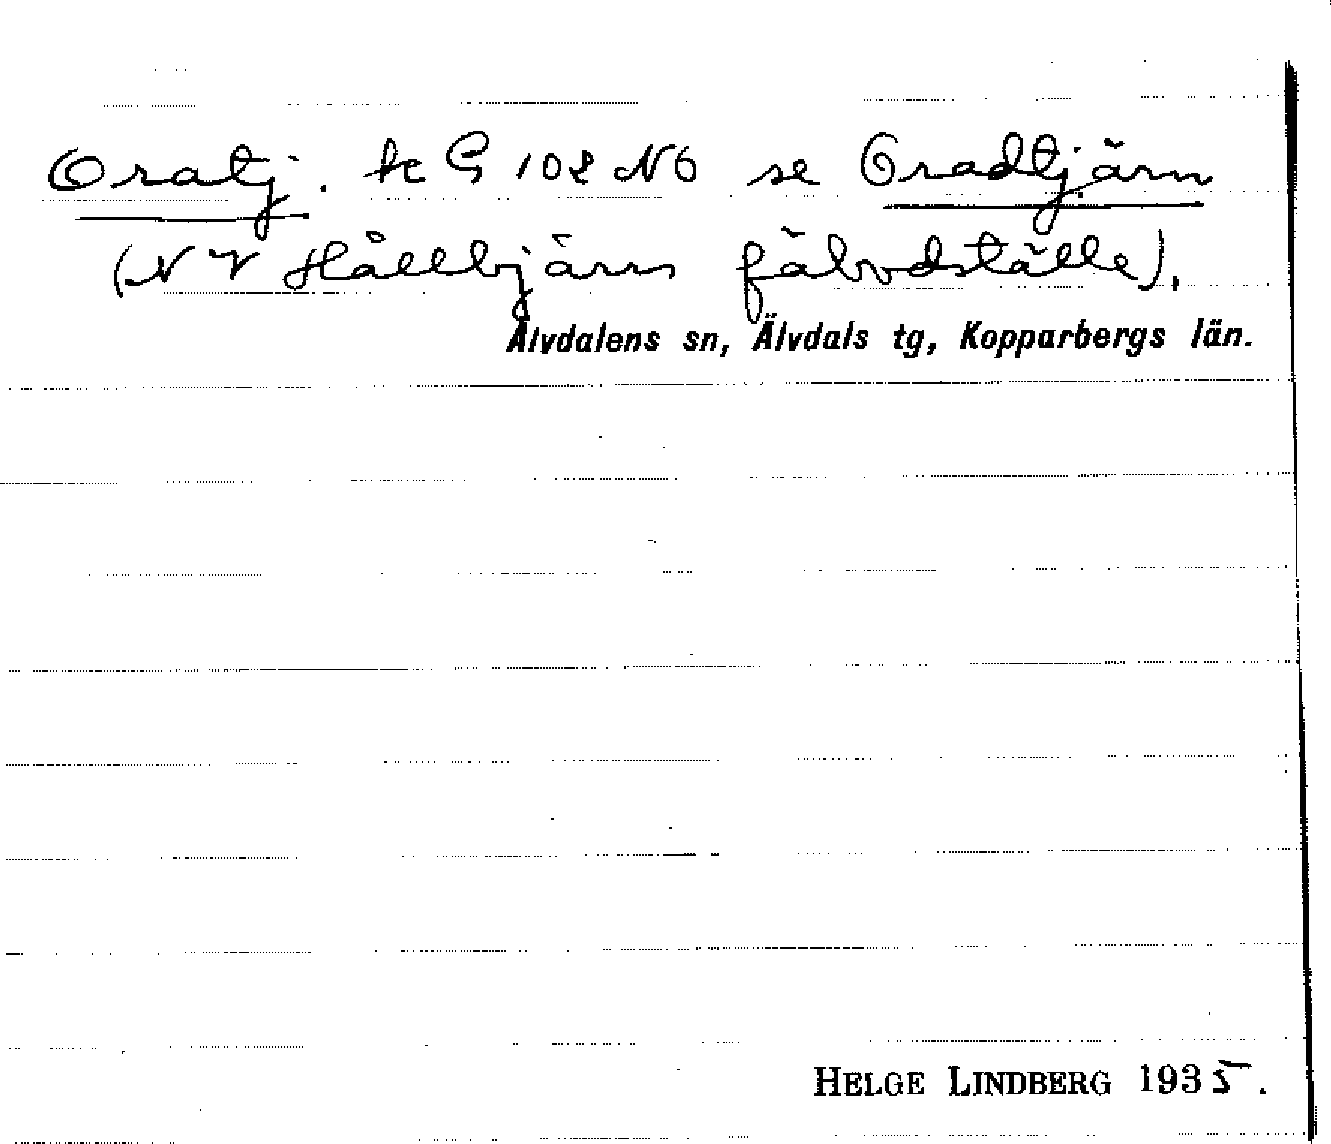 Oratj. kc G 102 NO se Oradtjärn
(NV Hållbjärns fäbodställe).
Älvdalens sn, Älvdals tg, Kopparbergs län.
HELGE LINDBERG 1935.